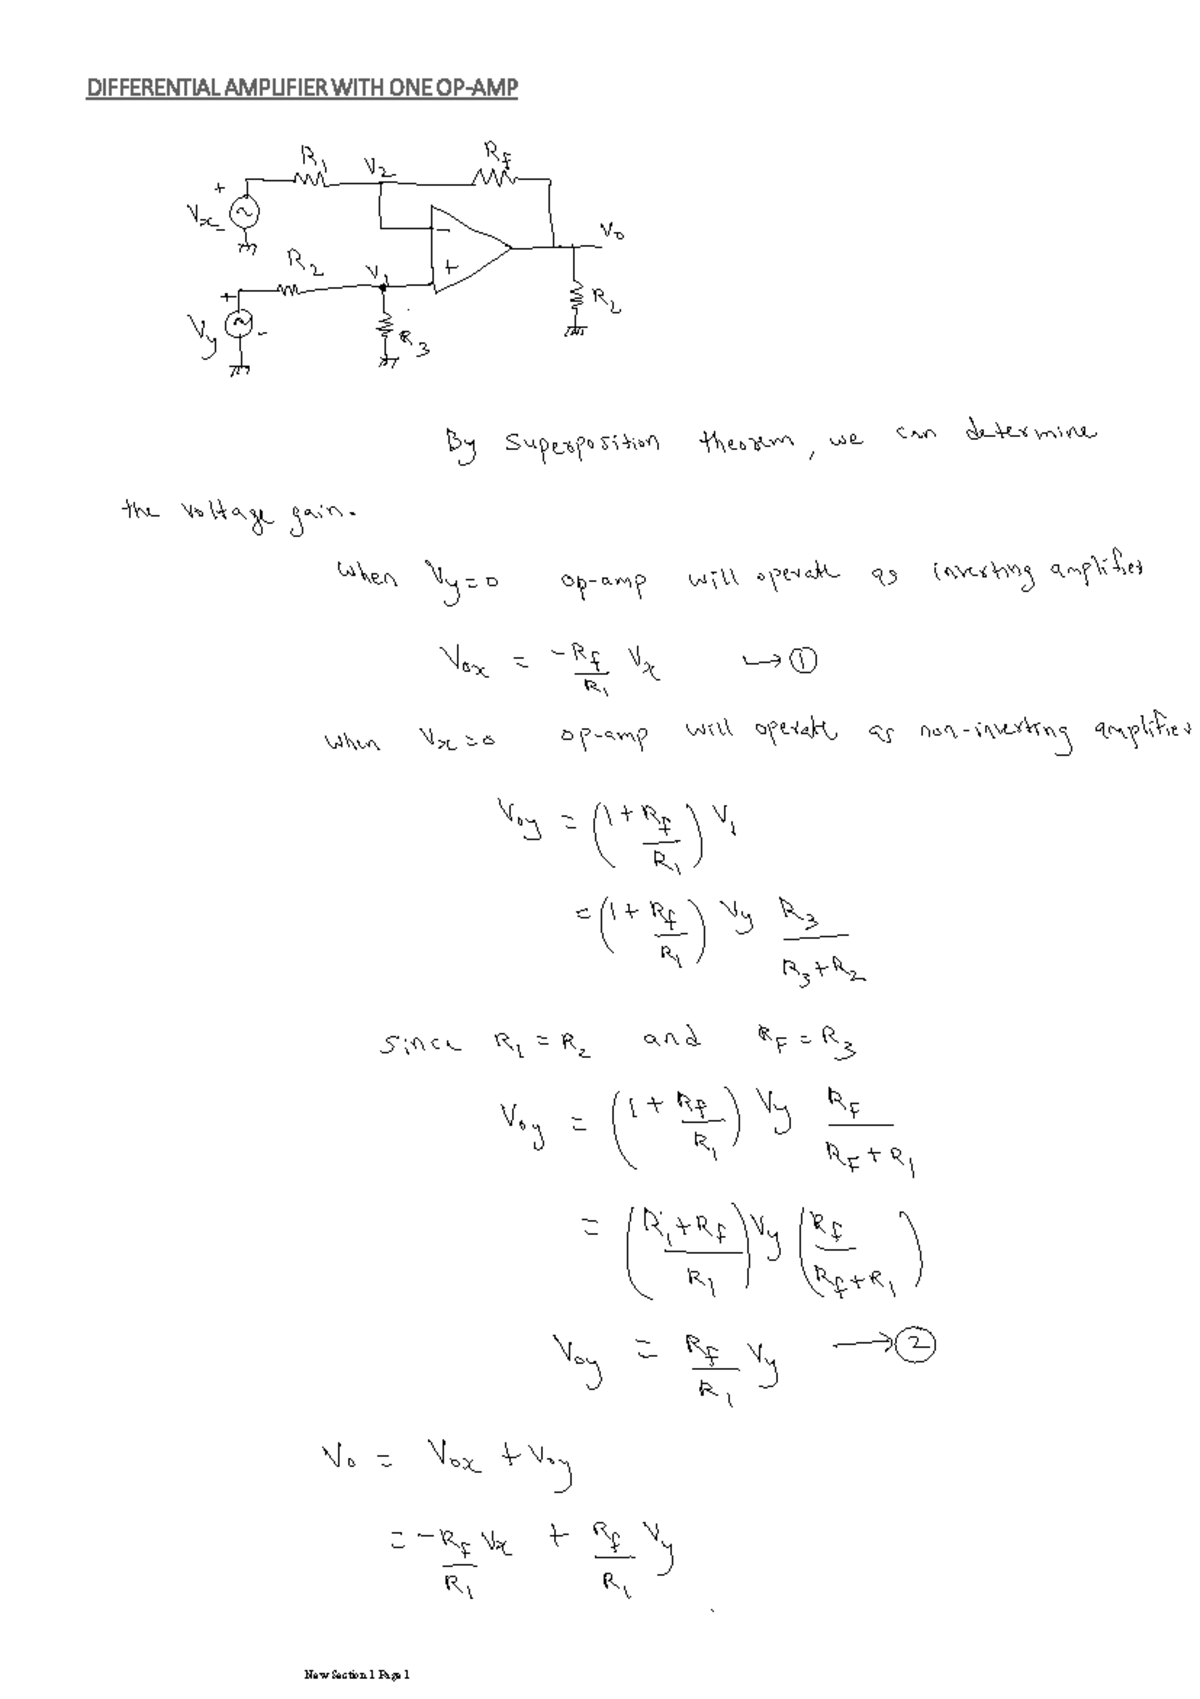 DIFFERENTIAL AMPLIFIER WITH ONE OP-AMP
R1 V2 Rf
+
Vx -
- V0
R2 V1 +
+ R2
Vy - R3
By superposition theorem, we can determine
the voltage gain.
When Vy=0 op-amp will operate as inverting amplifier
Vox = -Rf/R1 Vx → ①
When Vx=0 op-amp will operate as non-inverting amplifier
Voy = (1+Rf/R1) V1
= (1+Rf/R1) Vy R3/R3+R2
Since R1 = R2 and RF = R3
Voy = (1+Rf/R1) Vy RF/RF+R1
= (R1+Rf/R1) Vy (Rf/Rf+R1)
Voy = Rf/R1 Vy → ②
V0 = Vox + Voy
= -Rf/R1 Vx + Rf/R1 Vy
New Section 1 Page 1